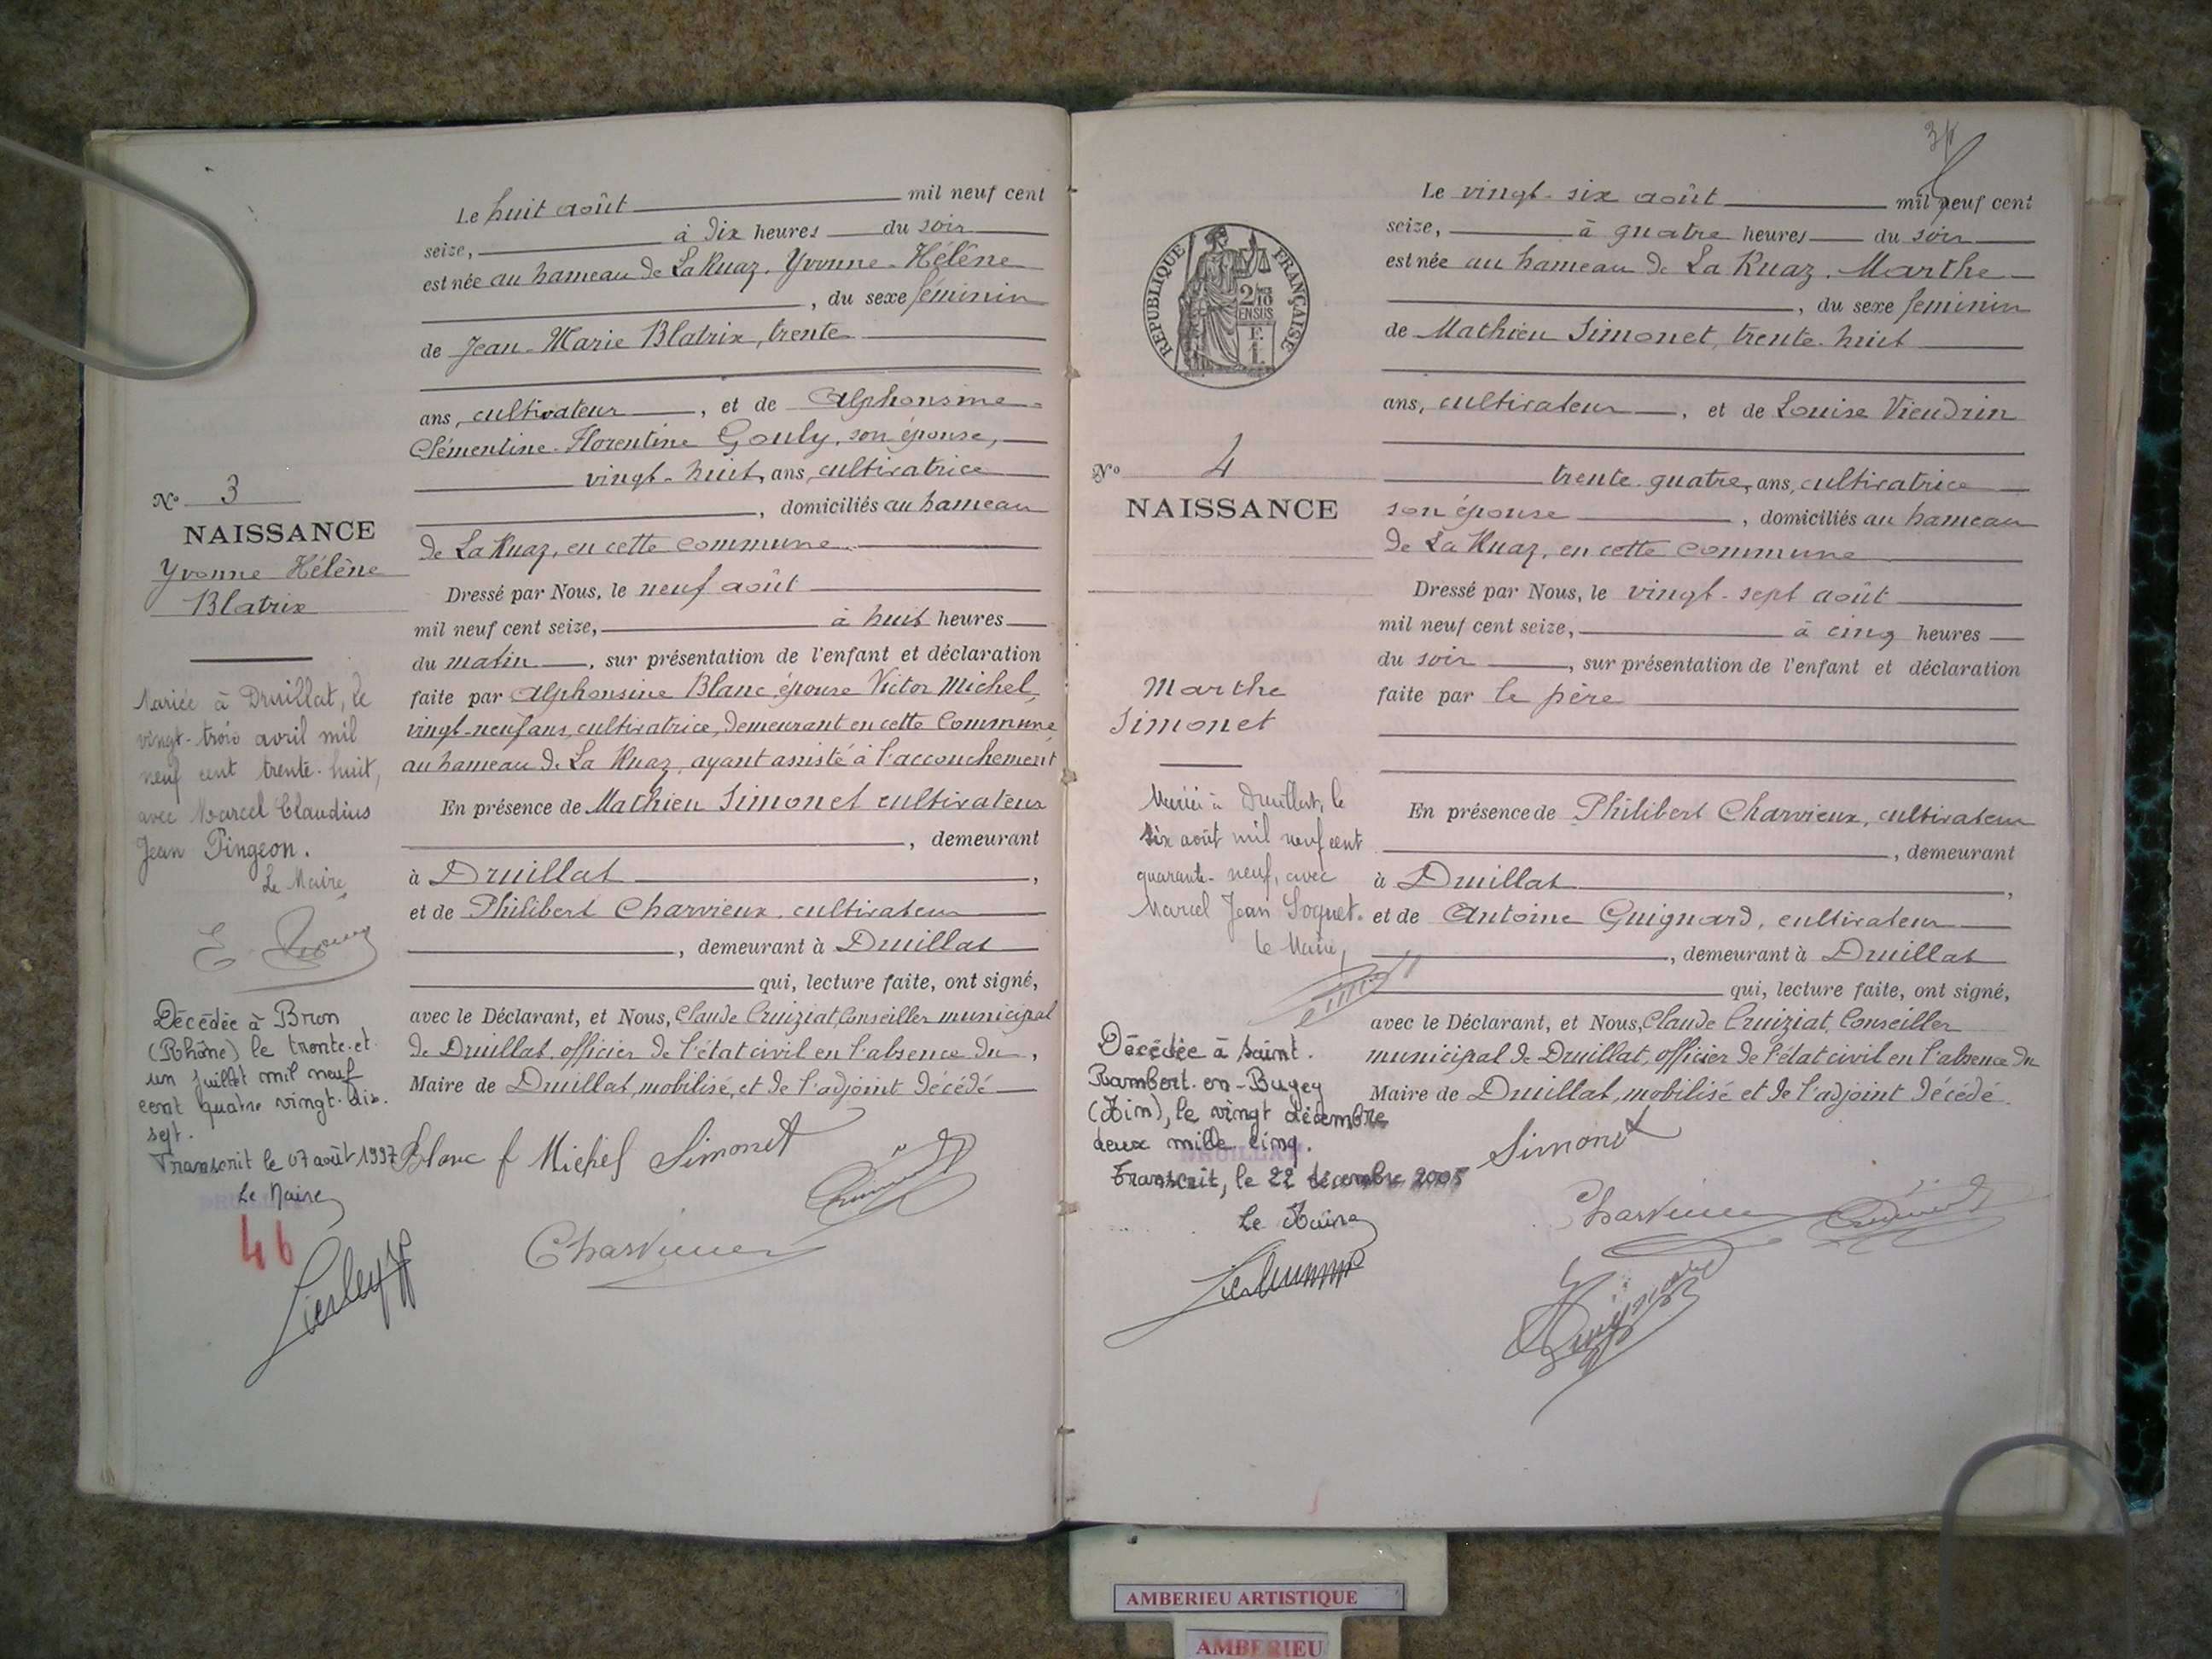 Le huit août mil neuf cent
seize, à dix heures du soir
est née au hameau de La Ruaz, Yvonne-Hélène
, du sexe féminin
de Jean-Marie Blatrix, trente
ans, cultivateur, et de Alphonsine
Clémentine-Florentine Gouly, son épouse,
vingt-huit, ans, cultivatrice
, domiciliés au hameau
de La Ruaz, en cette commune
Dressé par Nous, le neuf août
mil neuf cent seize, à huit heures
du matin, sur présentation de l'enfant et déclaration
faite par Alphonsine Blanc épouse Victor Michel,
vingt-neuf ans, cultivatrice, demeurant en cette Commune
au hameau de La Ruaz, ayant assisté à l'accouchement
En présence de Mathieu Simonet cultivateur
, demeurant
à Druillat,
et de Philibert Charvieux, cultivateur
, demeurant à Druillat
qui, lecture faite, ont signé,
avec le Déclarant, et Nous, Claude Cruiziat, Conseiller municipal
de Druillat, officier de l'état civil en l'absence du,
Maire de Druillat, mobilisé, et de l'adjoint décédé
Blanc f Michel Simonet
Charvieux
No 3
NAISSANCE
Yvonne Hélène
Blatrix
Mariée à Druillat, le
vingt-trois avril mil
neuf cent trente-huit,
avec Marcel Claudius
Jean Pingeon.
Le Maire,
Décédée à Bron
(Rhône) le trente et
un juillet mil neuf
cent quatre vingt-dix-
sept.
Transcrit le 07 août 1997
Le Maire
DRUILLAT
46
Le vingt-six août mil neuf cent
seize, à quatre heures du soir
est née au hameau de La Ruaz, Marthe
, du sexe féminin
de Mathieu Simonet, trente-huit
ans, cultivateur, et de Louise Vieudrin
trente-quatre, ans, cultivatrice
son épouse, domiciliés au hameau
de La Ruaz, en cette commune
Dressé par Nous, le vingt-sept août
mil neuf cent seize, à cinq heures
du soir, sur présentation de l'enfant et déclaration
faite par le père
En présence de Philibert Charvieux, cultivateur
, demeurant
à Druillat,
et de Antoine Guignard, cultivateur
, demeurant à Druillat
qui, lecture faite, ont signé,
avec le Déclarant, et Nous, Claude Cruiziat, Conseiller
municipal de Druillat, officier de l'état civil en l'absence du
Maire de Druillat, mobilisé et de l'adjoint décédé.
Simonet
Charvieux
RÉPUBLIQUE FRANÇAISE
2/10
EN SUS
No 4
NAISSANCE
Marthe
Simonet
Mariée à Druillat, le
six août mil neuf cent
quarante-neuf, avec
Marcel Jean Soquet.
le Maire,
Décédée à Saint-
Rambert-en-Bugey
(Ain), le vingt décembre
deux mille cinq.
DRUILLAT
Transcrit, le 22 décembre 2005
Le Maire
AMBERIEU ARTISTIQUE
AMBERIEU